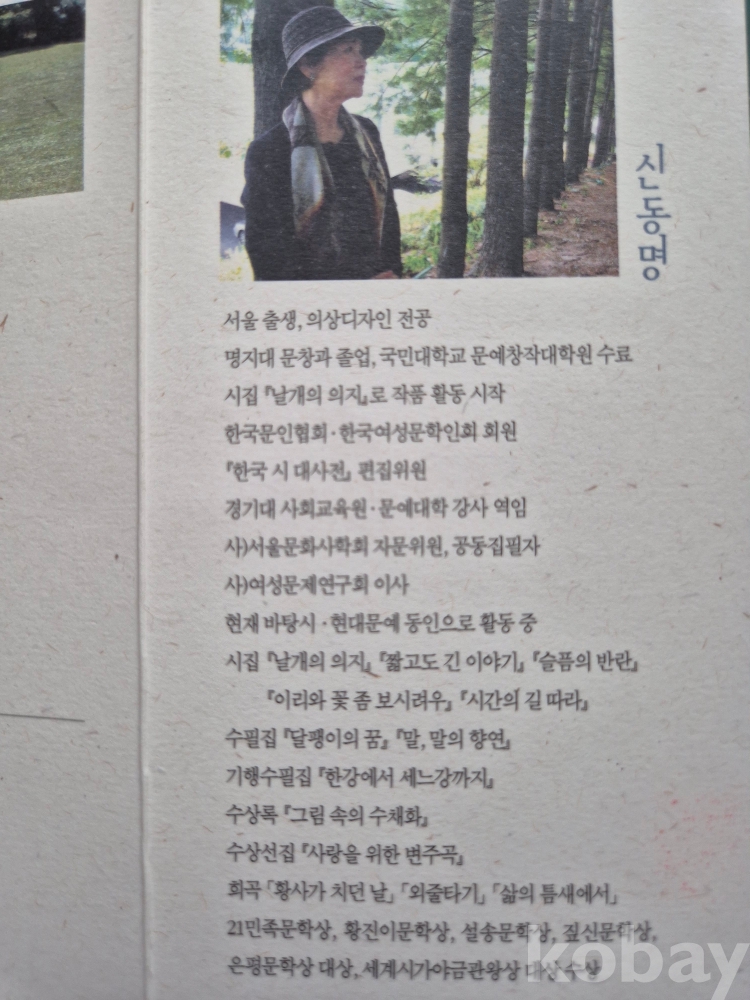 신동명
서울 출생, 의상디자인 전공
명지대 문창과 졸업, 국민대학교 문예창작대학원 수료
시집 『날개의 의지』로 작품 활동 시작
한국문인협회·한국여성문학인회 회원
『한국 시 대사전』 편집위원
경기대 사회교육원·문예대학 강사 역임
사)서울문화사학회 자문위원, 공동집필자
사)여성문제연구회 이사
현재 바탕시·현대문예 동인으로 활동 중
시집 『날개의 의지』 『짧고도 긴 이야기』 『슬픔의 반란』
『이리와 꽃 좀 보시려우』 『시간의 길 따라』
수필집 『달팽이의 꿈』 『말, 말의 향연』
기행수필집 『한강에서 세느강까지』
수상록 『그림 속의 수채화』
수상선집 『사랑을 위한 변주곡』
희곡 「황사가 치던 날」 「외줄타기」 「삶의 틈새에서」
21민족문학상, 황진이문학상, 설송문학상, 짚신문학상,
은평문학상 대상, 세계시가야금관왕상 대상 수상
kobay